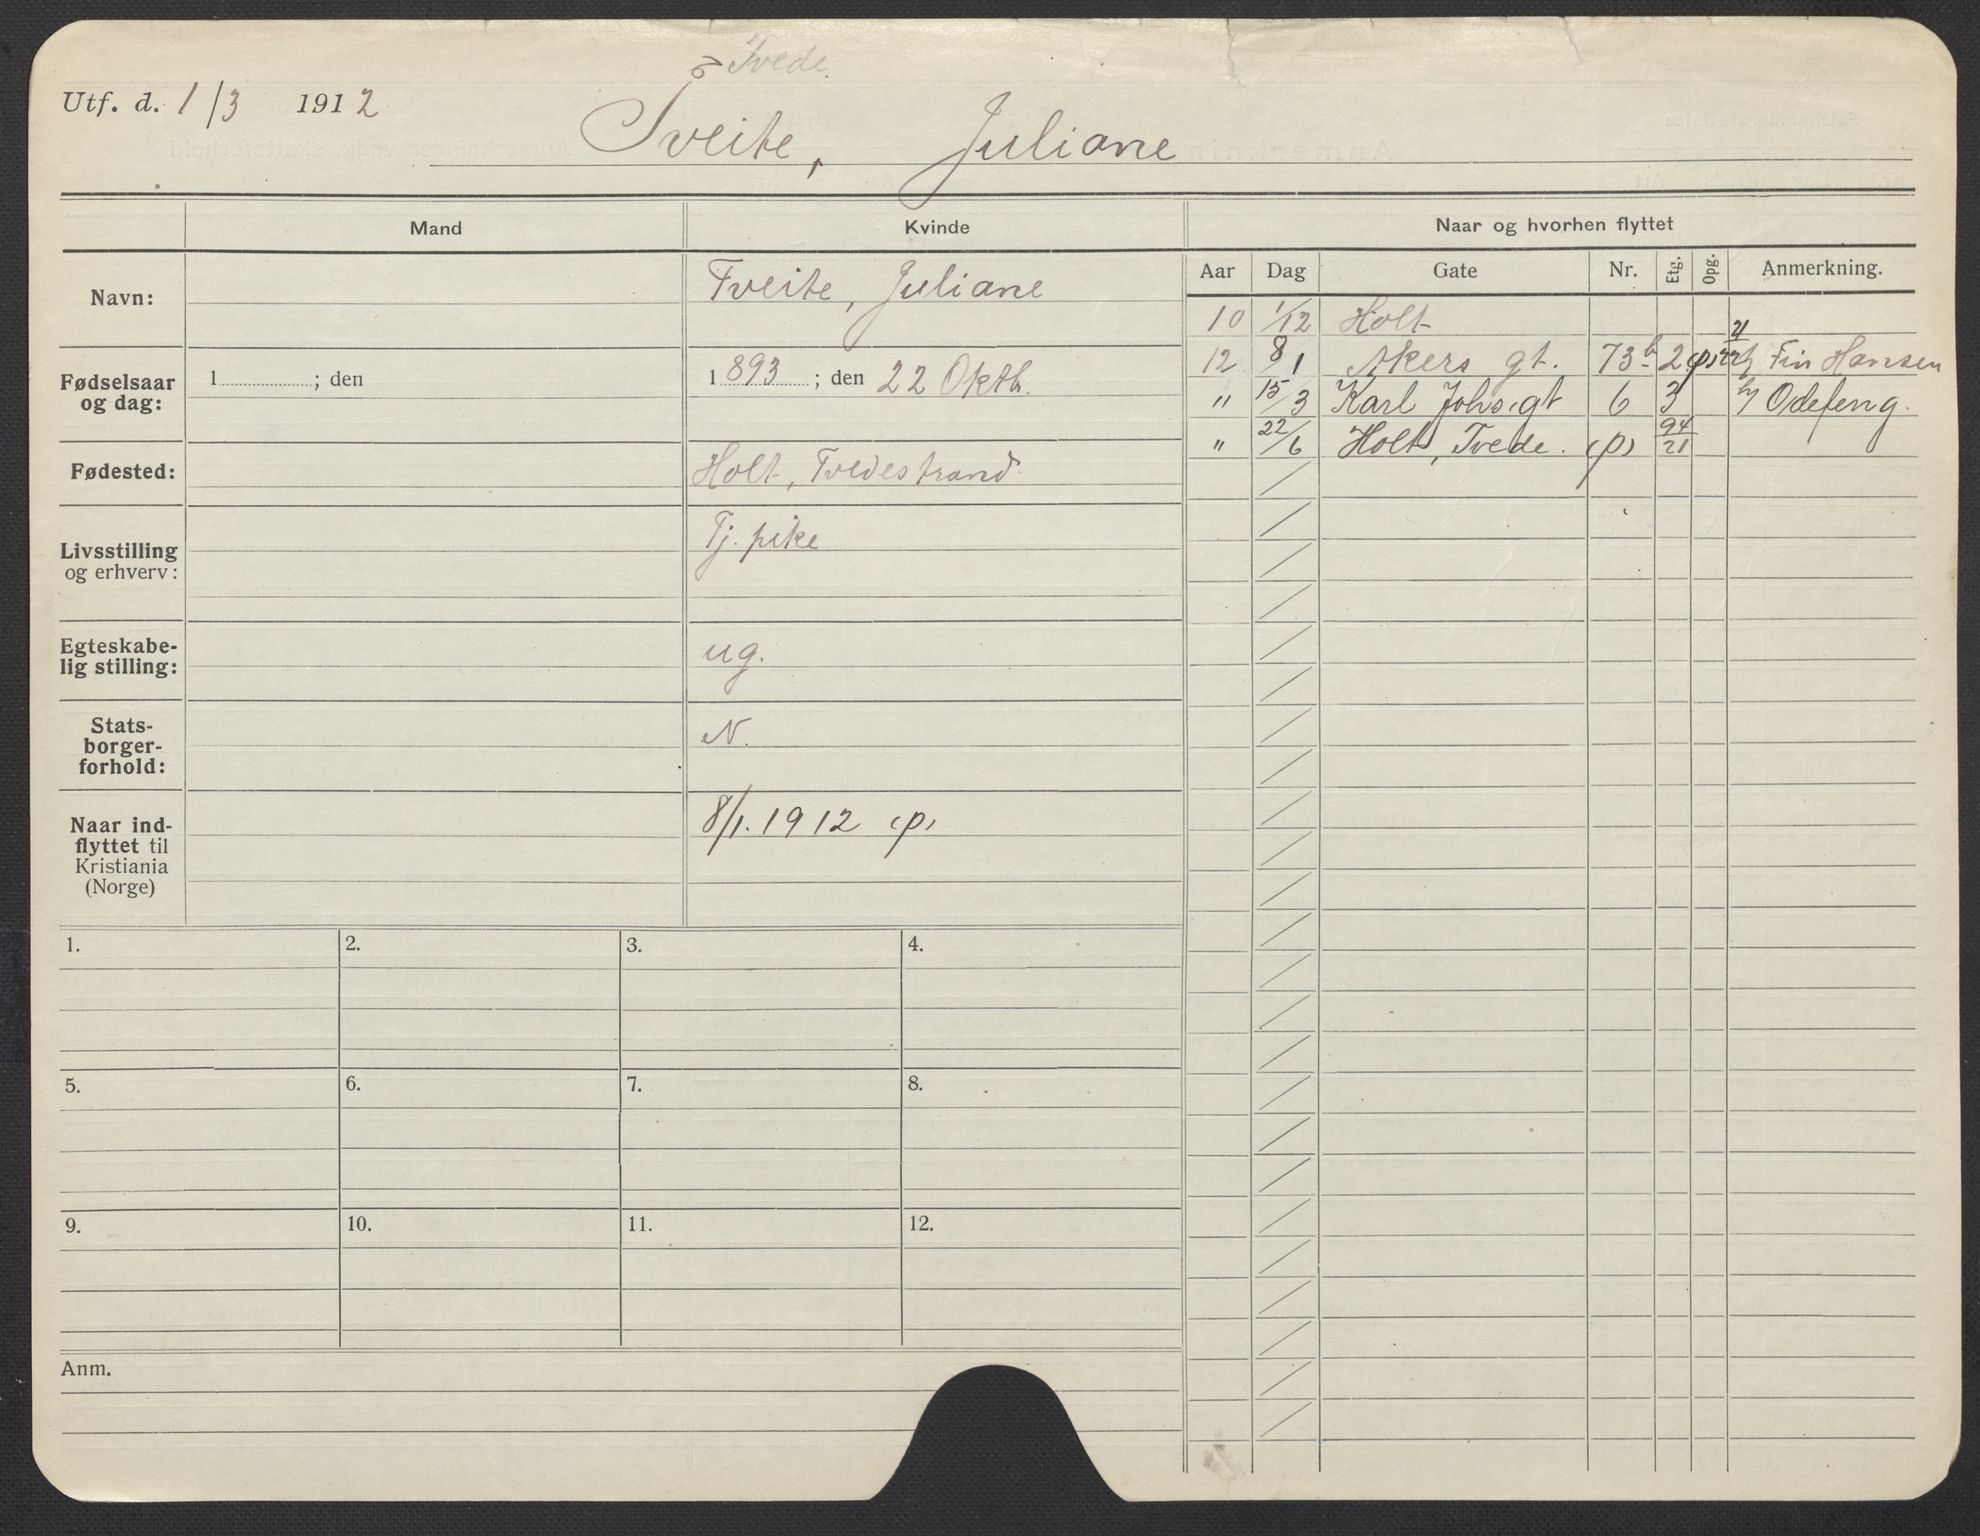 Tvede.
Utf. d. 1/3 1912
Tveite, Juliane
Mand
Kvinde
Naar og hvorhen flyttet
Aar Dag Gate Nr. Etg. Opg. Anmerkning.
Navn:
Tveite, Juliane
Fødselsaar
og dag:
1 ; den
1893 ; den 22 Oktb.
Fødested:
Holt, Tvedestrand
Livsstilling
og erhverv:
Tj. pike
Egteskabe-
lig stilling:
ug.
Stats-
borger-
forhold:
N.
Naar ind-
flyttet til
Kristiania
(Norge)
8/1. 1912 (p)
10 1/12 Holt
12 8/1 Akers gt. 73 b 2 (p) Fin Hansen
" 15/3 Karl Johs. gt 6 3
" 22/6 Holt, Tvede. (p) 94/21
1. 2. 3. 4.
5. 6. 7. 8.
9. 10. 11. 12.
Anm.